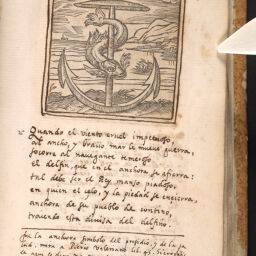 Quando el viento cruel impetuoso
al ancho, y brauo mar le mueue guerra,
socorra al nauegante temeroso
el delfin, que en el anchora se afierra:
tal debe ser el Rey manso piadoso,
en quien el zelo, y la piedad se encierra,
anchora de su pueblo de contino,
trayendo esta diuisa del delfino.
fue la anchora simbolo del presidio, y de la
lud, mira a Pierio Valeriano lib. 45.